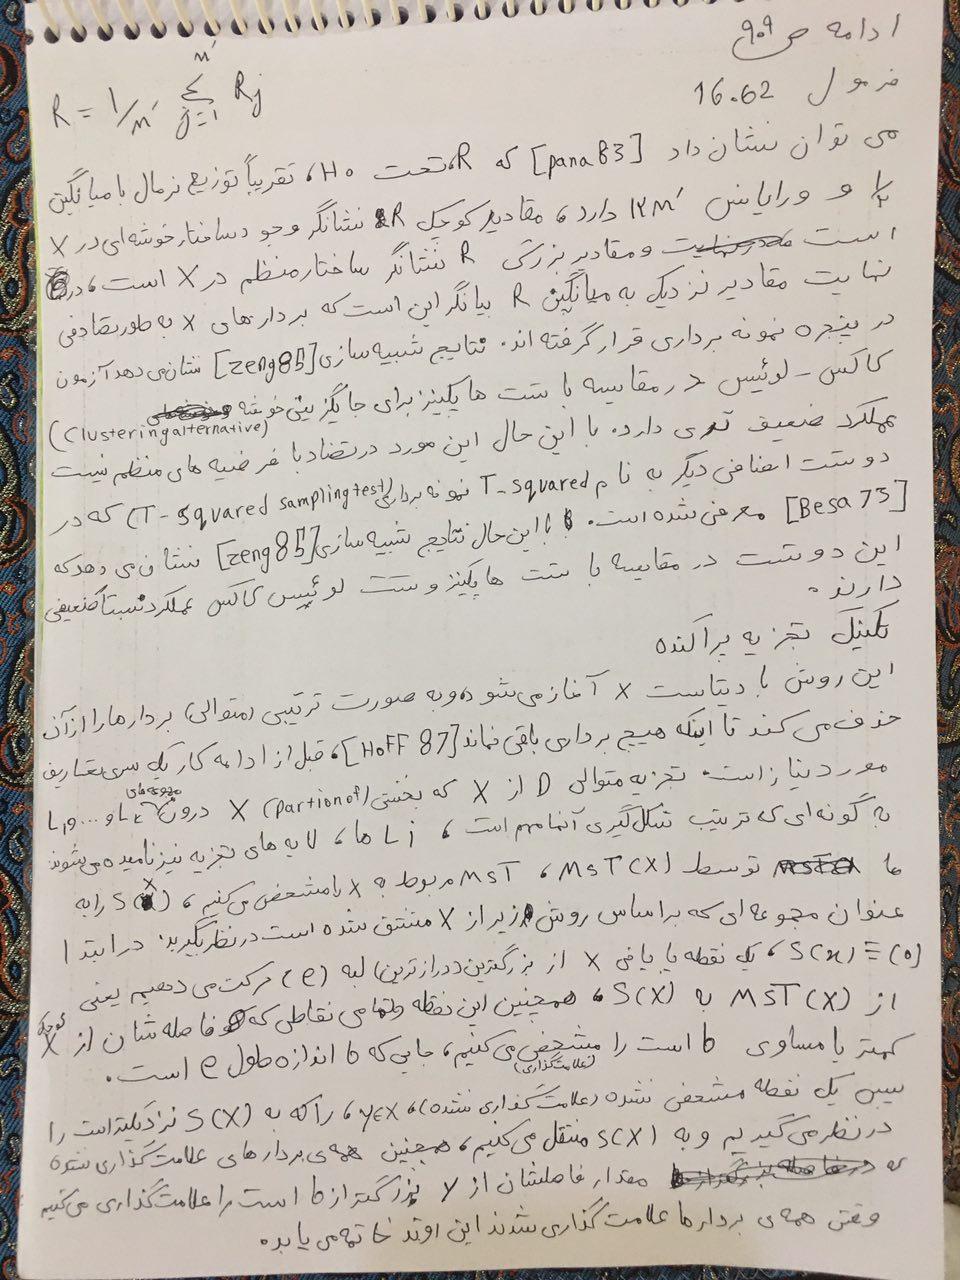 ادامه ص ۹۰۹
فرمول 16.62
R = 1/M′ Σ j=1 M′ Rj
می توان نشان داد [pana 83] که R، تحت H0، تقریباً توزیع نرمال با میانگین
۱/۲ و ورایانس ۱۲M′ دارد، مقادیر کوچک R نشانگر وجود ساختار خوشه ای در X
است و مقادیر بزرگ R نشانگر ساختار منظم در X است، در
نهایت مقادیر نزدیک به میانگین R بیانگر این است که بردارهای X به طور تصادفی
در پنجره نمونه برداری قرار گرفته اند. نتایج شبیه سازی [zeng 85] نشان می دهد آزمون
کاکس - لوئیس در مقایسه با تست هاپکینز برای جایگزینی خوشه
(Clustering alternative)
عملکرد ضعیف تری دارد. با این حال این مورد در تضاد با فرضیه های منظم نیست
دو تست اضافی دیگر به نام T-squared نمونه برداری (T-squared sampling test) که در
[Besa 73] معرفی شده است. با این حال نتایج شبیه سازی [zeng 85] نشان می دهد که
این دو تست در مقایسه با تست هاپکینز و تست لوئیس کاکس عملکرد نسبتا ضعیفی
دارند.
تکنیک تجزیه پراکنده
این روش با دیتاست X آغاز می شود و به صورت ترتیبی (متوالی) بردارها را از آن
حذف می کند تا اینکه هیچ برداری باقی نماند [HoFF 87]، قبل از ادامه کار یک سری تعاریف
مورد نیاز است. تجزیه متوالی D از X که بخشی (partion of) X درون مجموعه های Lk و ... و L1
به گونه ای که ترتیب شکل گیری آنها مهم است، Lj ها، لایه های تجزیه نیز نامیده می شوند
ما توسط MST(X)، MST مربوط به X را مشخص می کنیم، S(X) را به
عنوان مجموعه ای که بر اساس روش زیر از X مشتق شده است در نظر بگیرید: در ابتدا
S(x) ≡ (0)، یک نقطه پایانی X از بزرگترین (درازترین) لبه (e) حرکت می دهیم یعنی
از MST(X) به S(X)، همچنین این نقطه و تمامی نقاطی که فاصله شان از X
کمتر یا مساوی b است را مشخص می کنیم، جایی که b اندازه طول e است.
(علامت گذاری)
سپس یک نقطه مشخص نشده (علامت گذاری نشده)، y∈X، را که به S(X) نزدیکتر است را
در نظر می گیریم و به S(X) منتقل می کنیم، همچنین همه ی بردارهای علامت گذاری نشده
که مقدار فاصلشان از y بزرگتر از b است را علامت گذاری می کنیم
وقتی همه ی بردارها علامت گذاری شدند این روند خاتمه می یابد.